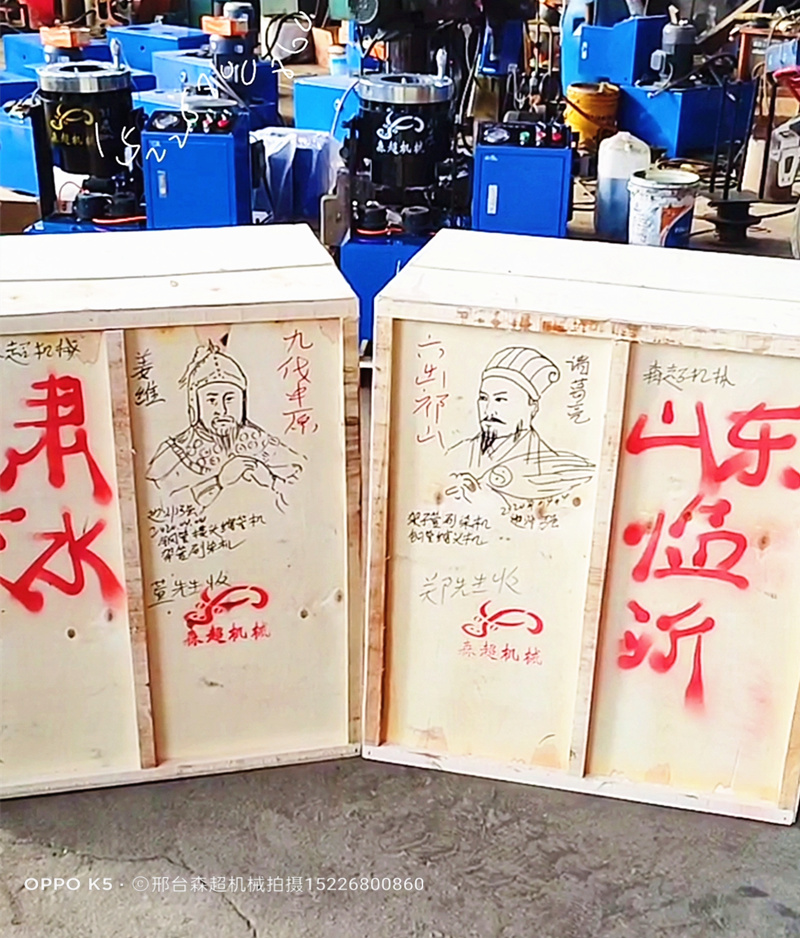 森超机械
森超机械
超机械
姜维
九伐中原
肃
水
钢管接头缩管机
架管刷漆机
董先生收
森超机械
六出祁山
诸葛亮
架子管刷漆机
钢管缩头机
郑先生收
森超机械
森超机械
山东
临
沂
OPPO K5 · ©邢台森超机械拍摄15226800860